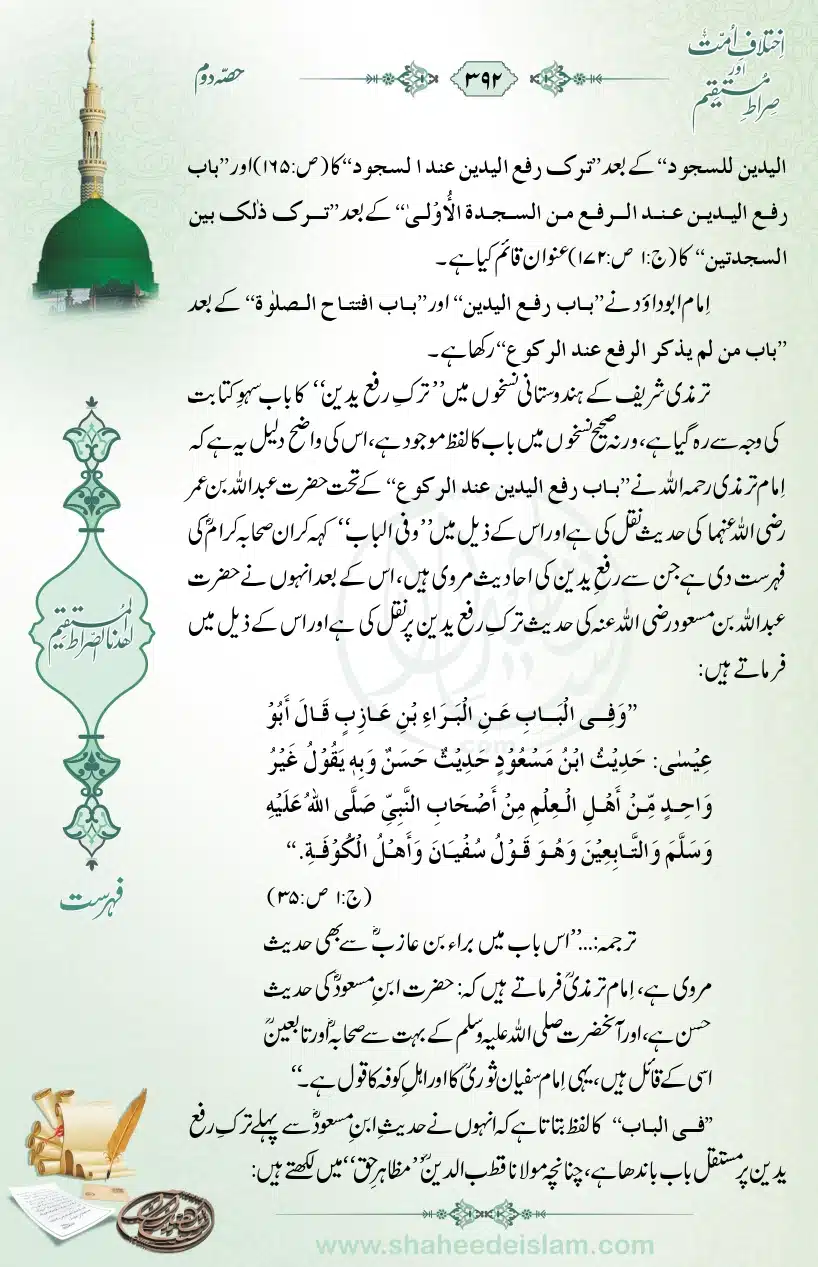 اِختلافِ اُمّت
اور
صِراطِ مُستقیم
۳۹۲
حصّہ دوم
الیدین للسجود‘‘ کے بعد ’’ترک رفع الیدین عند السجود‘‘ کا (ص:۱۶۵) اور ’’باب
رفع الیدین عند الرفع من السجدة الأُوْلیٰ‘‘ کے بعد ’’ترک ذٰلک بین
السجدتین‘‘ کا (ج:۱ ص:۱۷۲) عنوان قائم کیا ہے۔
اِمام ابوداؤد نے ’’باب رفع الیدین‘‘ اور ’’باب افتتاح الصلوٰة‘‘ کے بعد
’’باب من لم یذکر الرفع عند الرکوع‘‘ رکھا ہے۔
ترمذی شریف کے ہندوستانی نسخوں میں ’’ترکِ رفعِ یدین‘‘ کا باب سہوِ کتابت
کی وجہ سے رہ گیا ہے، ورنہ صحیح نسخوں میں باب کا لفظ موجود ہے، اس کی واضح دلیل یہ ہے کہ
اِمام ترمذی رحمہ اللہ نے ’’باب رفع الیدین عند الرکوع‘‘ کے تحت حضرت عبداللہ بن عمر
رضی اللہ عنہما کی حدیث نقل کی ہے اور اس کے ذیل میں ’’وفی الباب‘‘ کہہ کر ان صحابہ کرامؓ کی
فہرست دی ہے جن سے رفعِ یدین کی احادیث مروی ہیں، اس کے بعد انہوں نے حضرت
عبداللہ بن مسعود رضی اللہ عنہ کی حدیث ترکِ رفعِ یدین پر نقل کی ہے اور اس کے ذیل میں
فرماتے ہیں:
’’وَفِی الْبَابِ عَنِ الْبَرَاءِ بْنِ عَازِبٍ قَالَ أَبُوْ
عِیْسٰی: حَدِیْثُ ابْنُ مَسْعُوْدٍ حَدِیْثٌ حَسَنٌ وَبِهٖ یَقُوْلُ غَیْرُ
وَاحِدٍ مِّنْ أَهْلِ الْعِلْمِ مِنْ أَصْحَابِ النَّبِیِّ صَلَّی اللهُ عَلَیْهِ
وَسَلَّمَ وَالتَّابِعِیْنَ وَهُوَ قَوْلُ سُفْیَانَ وَأَهْلُ الْکُوْفَةِ.‘‘
(ج:۱ ص:۳۵)
ترجمہ:...’’اس باب میں براء بن عازبؓ سے بھی حدیث
مروی ہے، اِمام ترمذیؒ فرماتے ہیں کہ: حضرت ابنِ مسعودؓ کی حدیث
حسن ہے، اور آنحضرت صلی اللہ علیہ وسلم کے بہت سے صحابہؓ اور تابعینؒ
اسی کے قائل ہیں، یہی اِمام سفیان ثوریؒ کا اور اہلِ کوفہ کا قول ہے۔‘‘
’’فی الباب‘‘ کا لفظ بتاتا ہے کہ انہوں نے حدیثِ ابنِ مسعودؓ سے پہلے ترکِ رفعِ
یدین پر مستقل باب باندھا ہے، چنانچہ مولانا قطب الدینؒ ’’مظاہرِ حق‘‘ میں لکھتے ہیں:
اھدنا الصراط المستقیم
فہرست
www.shaheedeislam.com